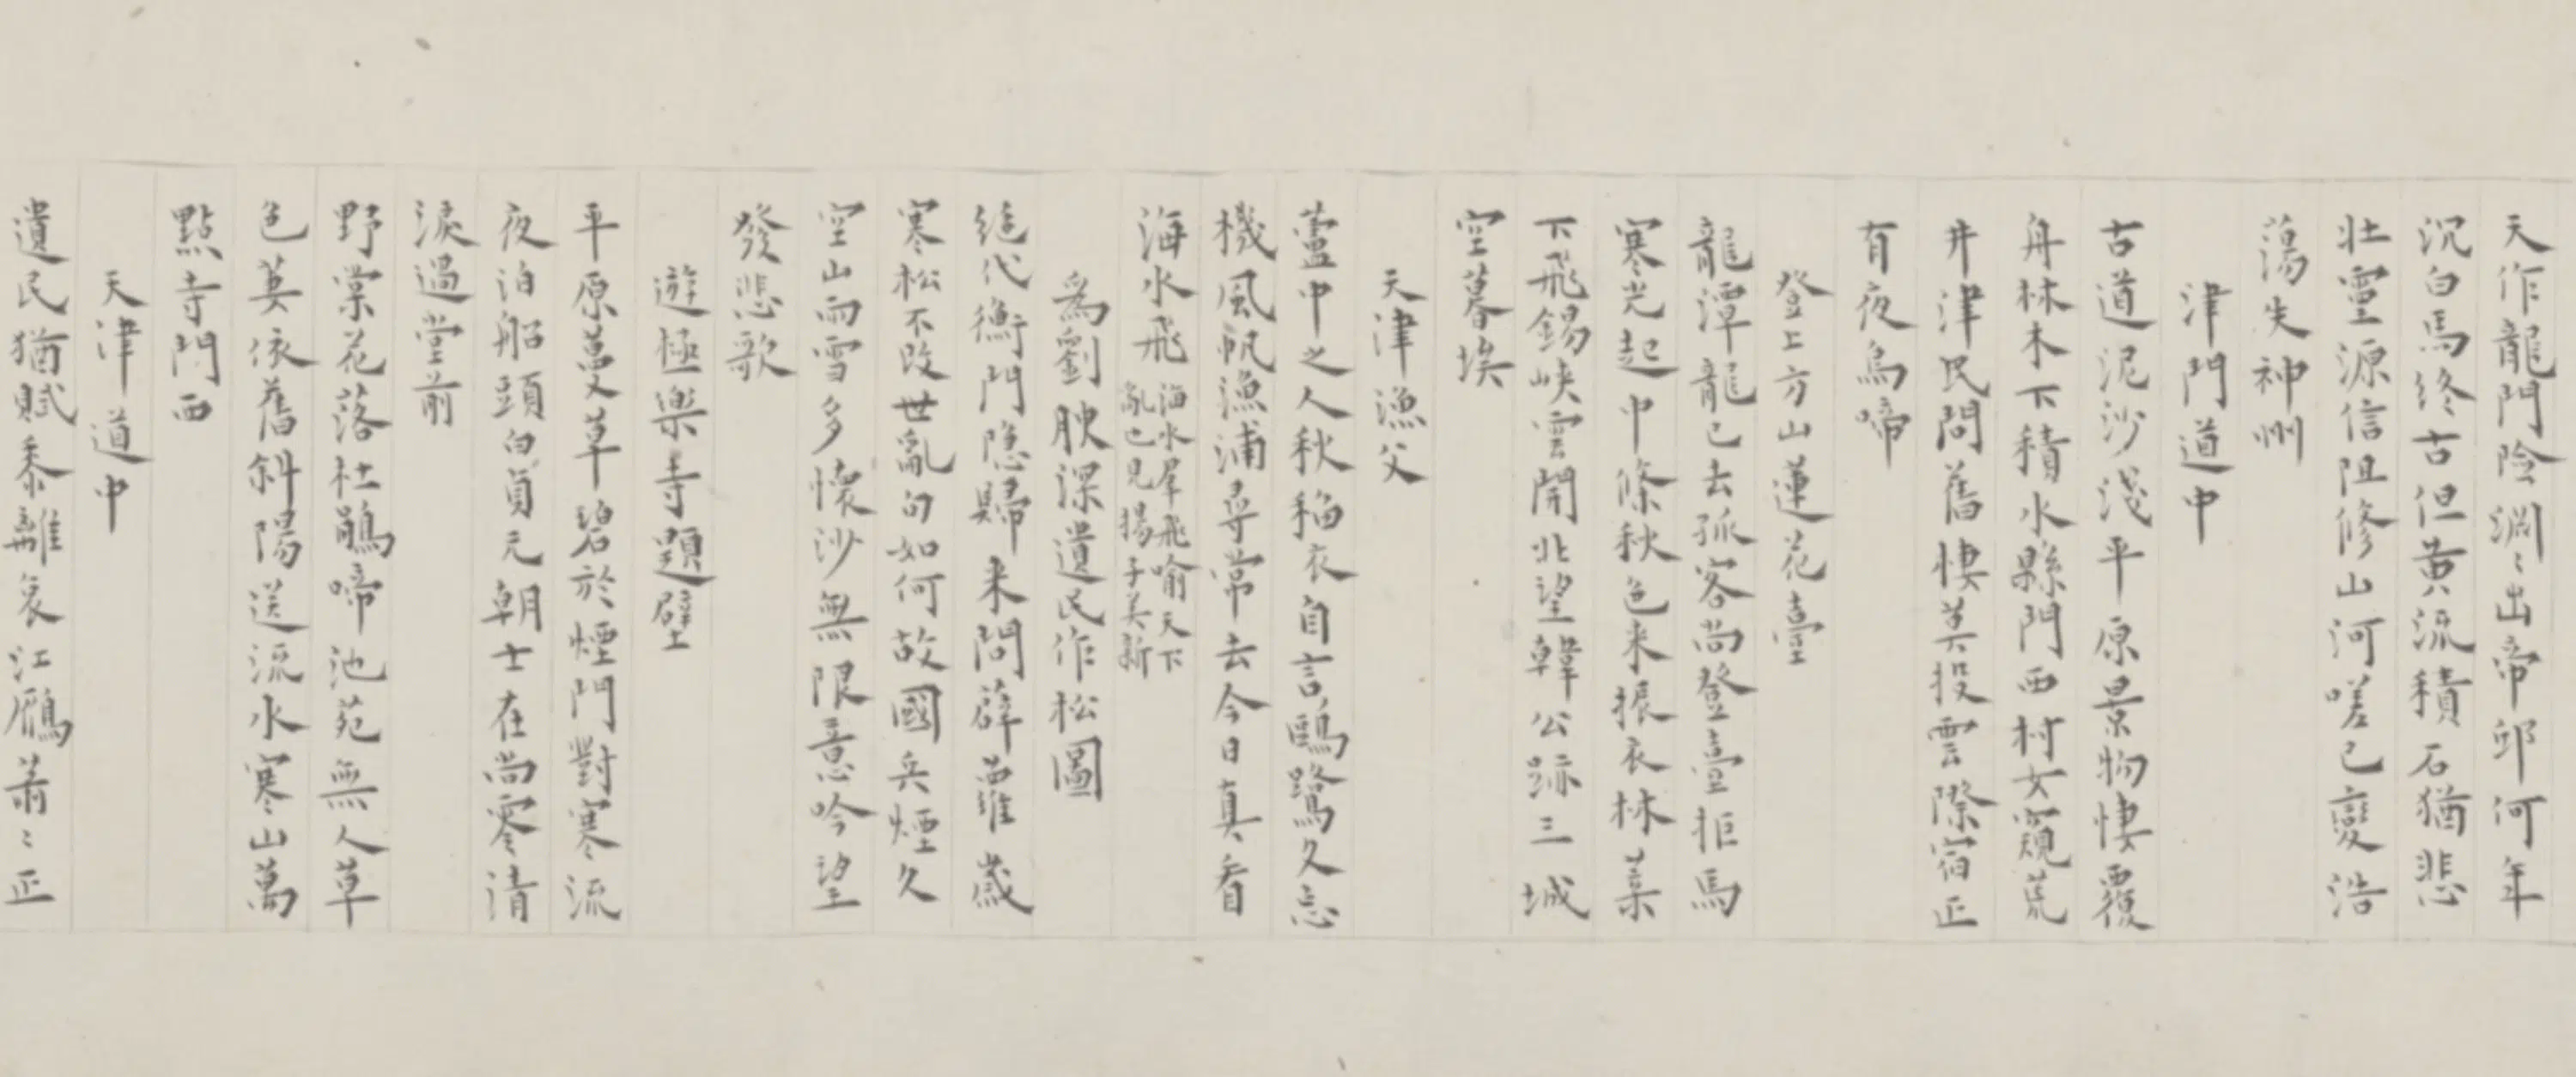 天作龍門險淵〻出帝邱何年
沉白馬終古但黃流積石猶悲
壯靈源信阻修山河嗟已變浩
蕩失神州
津門道中
古道泥沙淺平原景物悽覆
舟林木下積水縣門西村女窺荒
井津民問舊悽莫投雲際宿正
有夜烏啼
登上方山蓮花臺
龍潭龍已去孤客尚登臺拒馬
寒光起中條秋色来振衣林葉
下飛錫峽雲開北望韓公跡三城
空暮埃
天津漁父
蘆中之人秋稻衣自言鷗鷺久忘
機風帆漁浦尋常去今日真看
海水飛海水羣飛喻天下亂也見揚子美新
為劉腴深遺民作松圖
絕代衡門隱歸来問薜蘿歲
寒松不改世亂白如何故國兵煙久
空山雨雪多懷沙無限意吟望
發悲歌
遊極樂寺題壁
平原蔓草碧於煙門對寒流
夜泊船頭白貞元朝士在尚零清
淚過堂前
野棠花落杜鵑啼池苑無人草
色萋依舊斜陽送流水寒山萬
點寺門西
天津道中
遺民猶賦黍離哀江雁蕭〻正